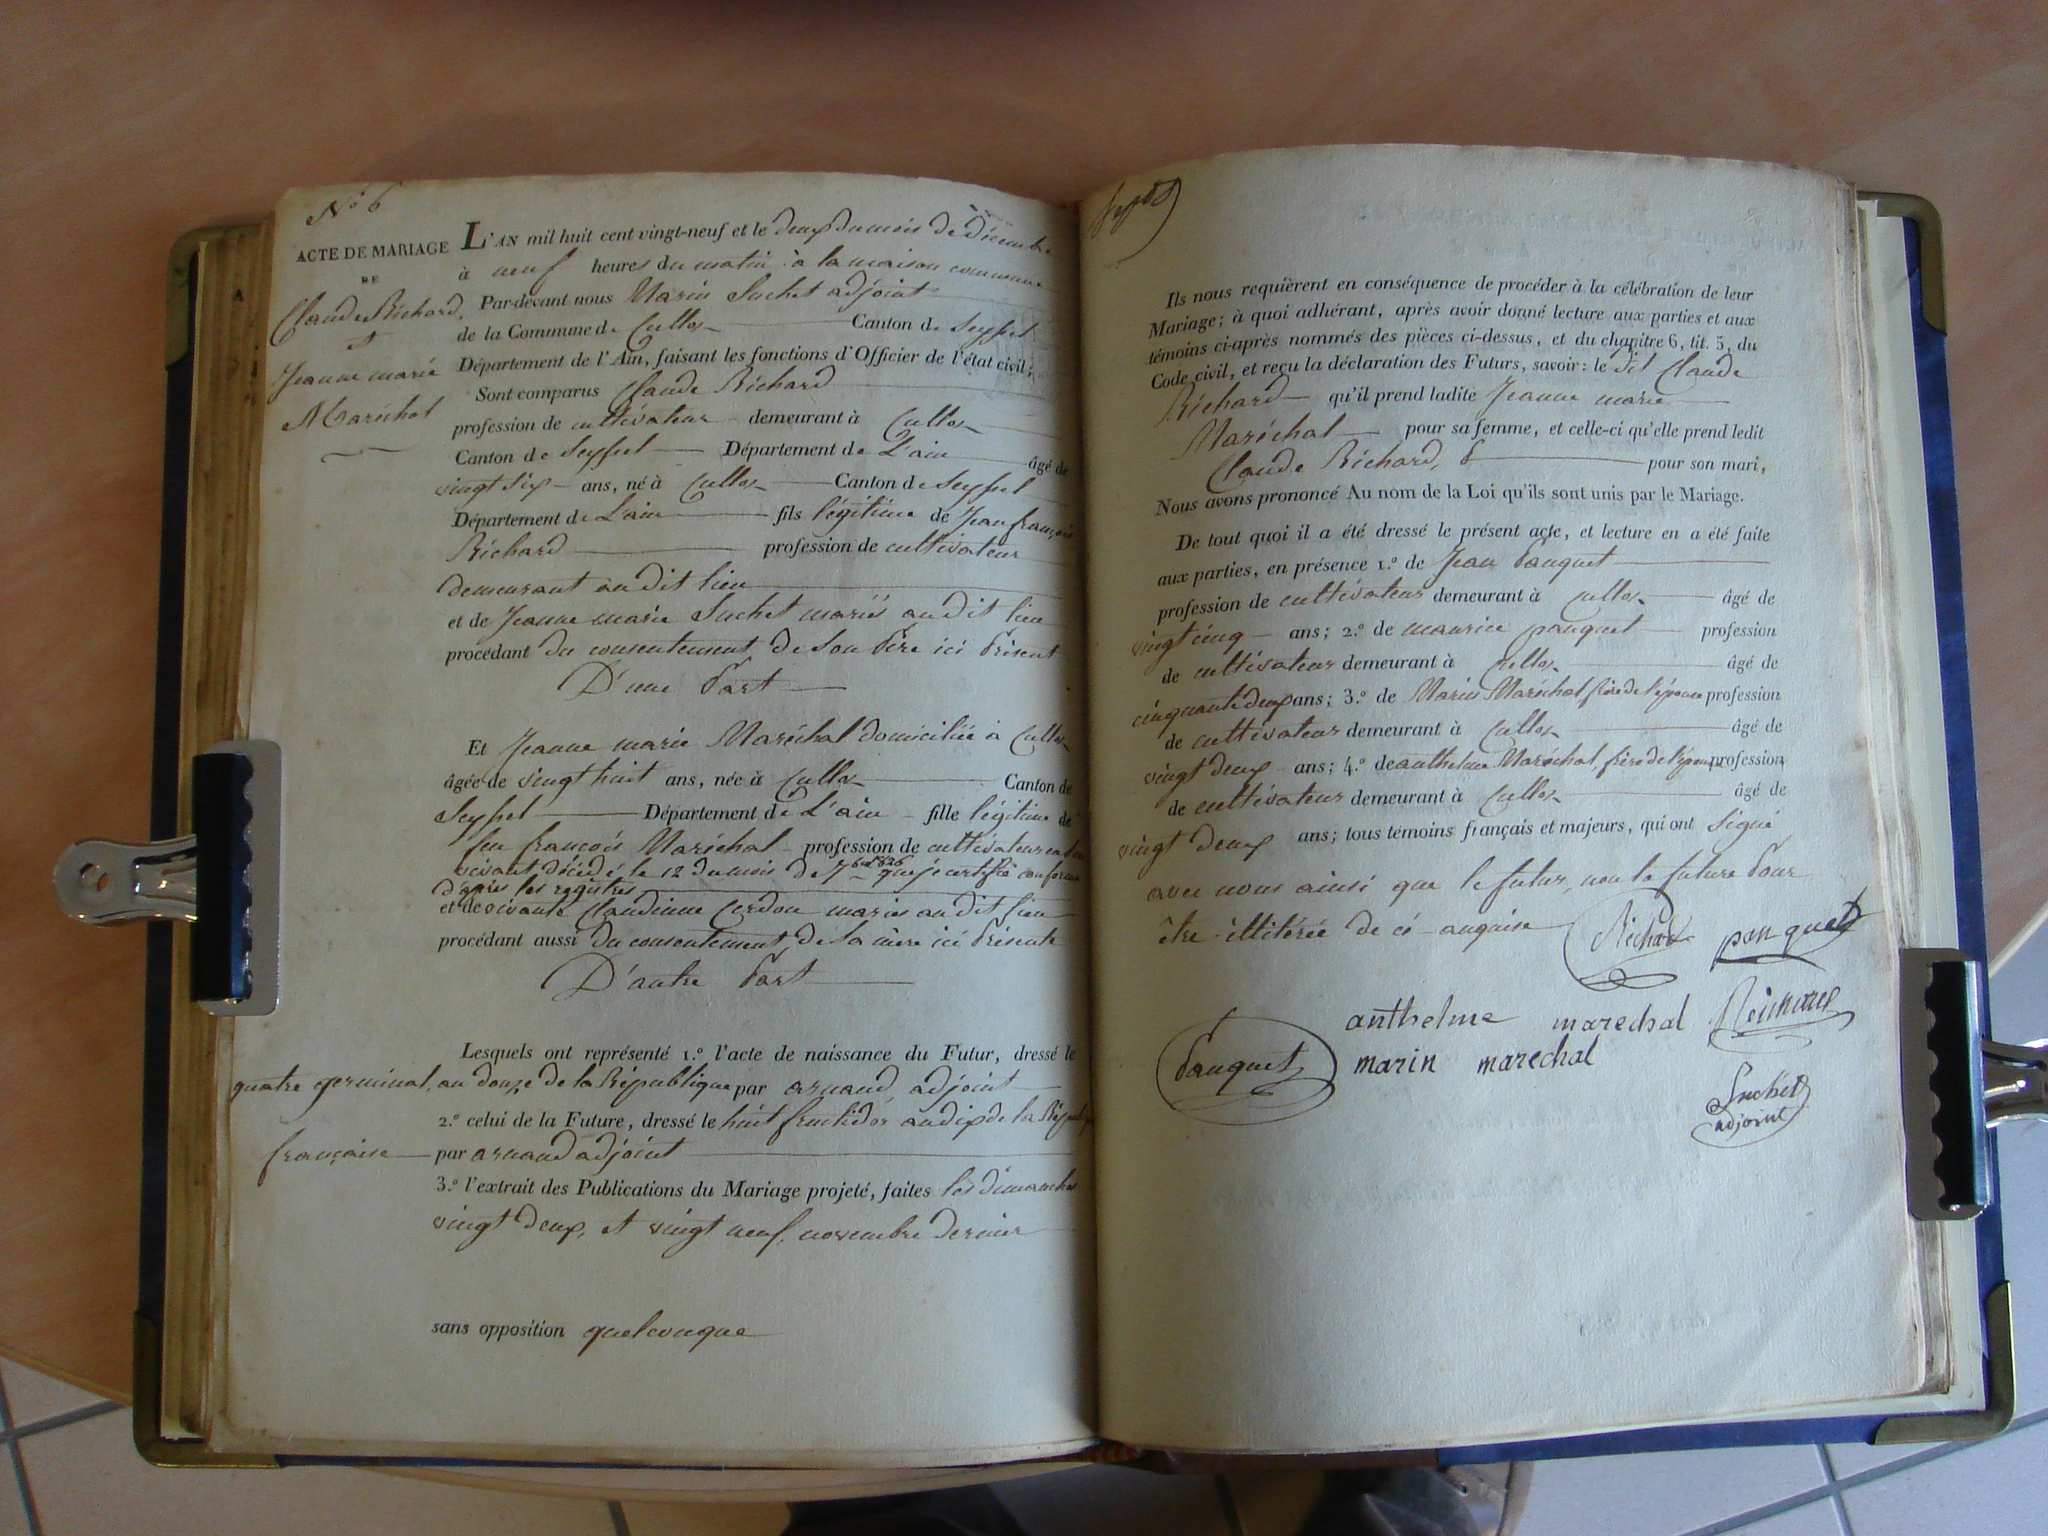 N.° 6
ACTE DE MARIAGE
DE
Claude Richard,
et
Jeanne marie
Maréchal
L'AN mil huit cent vingt-neuf et le deux du mois de décembre
à neuf heures du matin à la maison commune
Par-devant nous Marin Suchet adjoint
de la Commune de Culloz Canton de Seyssel
Département de l'Ain, faisant les fonctions d'Officier de l'état civil;
Sont comparus Claude Richard
profession de cultivateur demeurant à Culloz
Canton de Seyssel Département de L'ain âgé de
vingt six ans, né à Culloz Canton de Seyssel
Département de L'ain fils légitime de Jean françois
Richard profession de cultivateur
demeurant au dit lieu
et de Jeanne marie Suchet mariés au dit lieu
procédant du consentement de son Père ici Présent
D'une Part
Et Jeanne marie Maréchal domiciliée à Culloz
âgée de vingt huit ans, née à Culloz Canton de
Seyssel Département de L'ain fille légitime de
feu françois Maréchal profession de cultivateur en son
vivant décédé le 12 du mois de 7bre 1826 que je certifie conforme
d'après les registres
et de vivante Claudine Cerdon mariés au dit lieu
procédant aussi du consentement de sa mère ici Présente
D'autre Part
Lesquels ont représenté 1.° l'acte de naissance du Futur, dressé le
quatre germinal, an douze de la République par arnaud adjoint
2.° celui de la Future, dressé le huit fructidor an dix de la République
française par arnaud adjoint
3.° l'extrait des Publications du Mariage projeté, faites les dimanches
vingt deux, et vingt neuf, novembre dernier
sans opposition quelconque
Ils nous requièrent en conséquence de procéder à la célébration de leur
Mariage; à quoi adhérant, après avoir donné lecture aux parties et aux
témoins ci-après nommés des pièces ci-dessus, et du chapitre 6, tit. 5, du
Code civil, et reçu la déclaration des Futurs, savoir: le dit Claude
Richard qu'il prend ladite Jeanne marie
Maréchal pour sa femme, et celle-ci qu'elle prend ledit
Claude Richard, pour son mari,
Nous avons prononcé Au nom de la Loi qu'ils sont unis par le Mariage.
De tout quoi il a été dressé le présent acte, et lecture en a été faite
aux parties, en présence 1.° de Jean Pauquet
profession de cultivateur demeurant à Culloz âgé de
vingt cinq ans; 2.° de maurice pauquet profession
de cultivateur demeurant à Culloz âgé de
cinquante deux ans; 3.° de Marin Maréchal frère de l'épouse profession
de cultivateur demeurant à Culloz âgé de
vingt deux ans; 4.° de anthelme Maréchal, frère de l'épouse profession
de cultivateur demeurant à Culloz âgé de
vingt deux ans; tous témoins français et majeurs, qui ont signé
avec nous ainsi que le futur, non la future Pour
être illitérée de ce enquise Richard panquet
anthelme marechal
Pauquet marin marechal
Suchet
adjoint